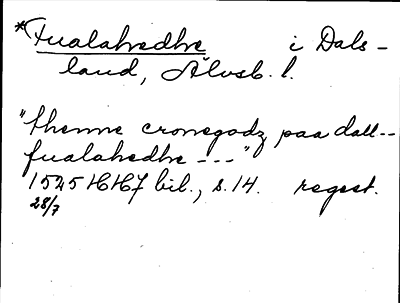 *Fualahedhe i Dals-
land, Älvsb. l.
"thenne cronegodz paa dall--
fualahedhe ---"
1545 16 bil., s. 14. regest.
28/7